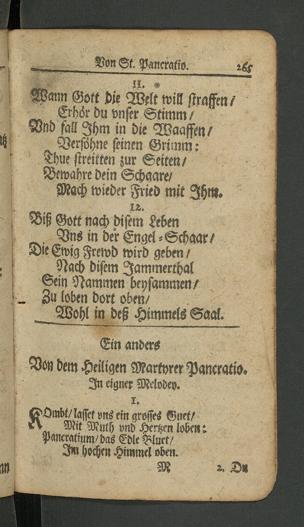 Von St. Pancratio. 265
11.
Wann Gott die Welt will straffen/
Erhör du vnser Stimm/
Vnd fall Ihm in die Waaffen/
Versöhne seinen Grimm:
Thue streitten zur Seiten/
Bewahre dein Schaare/
Mach wieder Fried mit Ihm.
12.
Biß Gott nach disem Leben
Vns in der Engel-Schaar/
Die Ewig Frewd wird geben/
Nach disem Jammerthal
Sein Nammen beysammen/
Zu loben dort oben/
Wohl in deß Himmels Saal.
Ein anders
Von dem Heiligen Martyrer Pancratio.
In eigner Melodey.
1.
KOmbt/ lasset vns ein grosses Guet/
Mit Muth vnd Hertzen loben:
Pancratium/ das Edle Bluet/
Im hochen Himmel oben.
M 2. Du